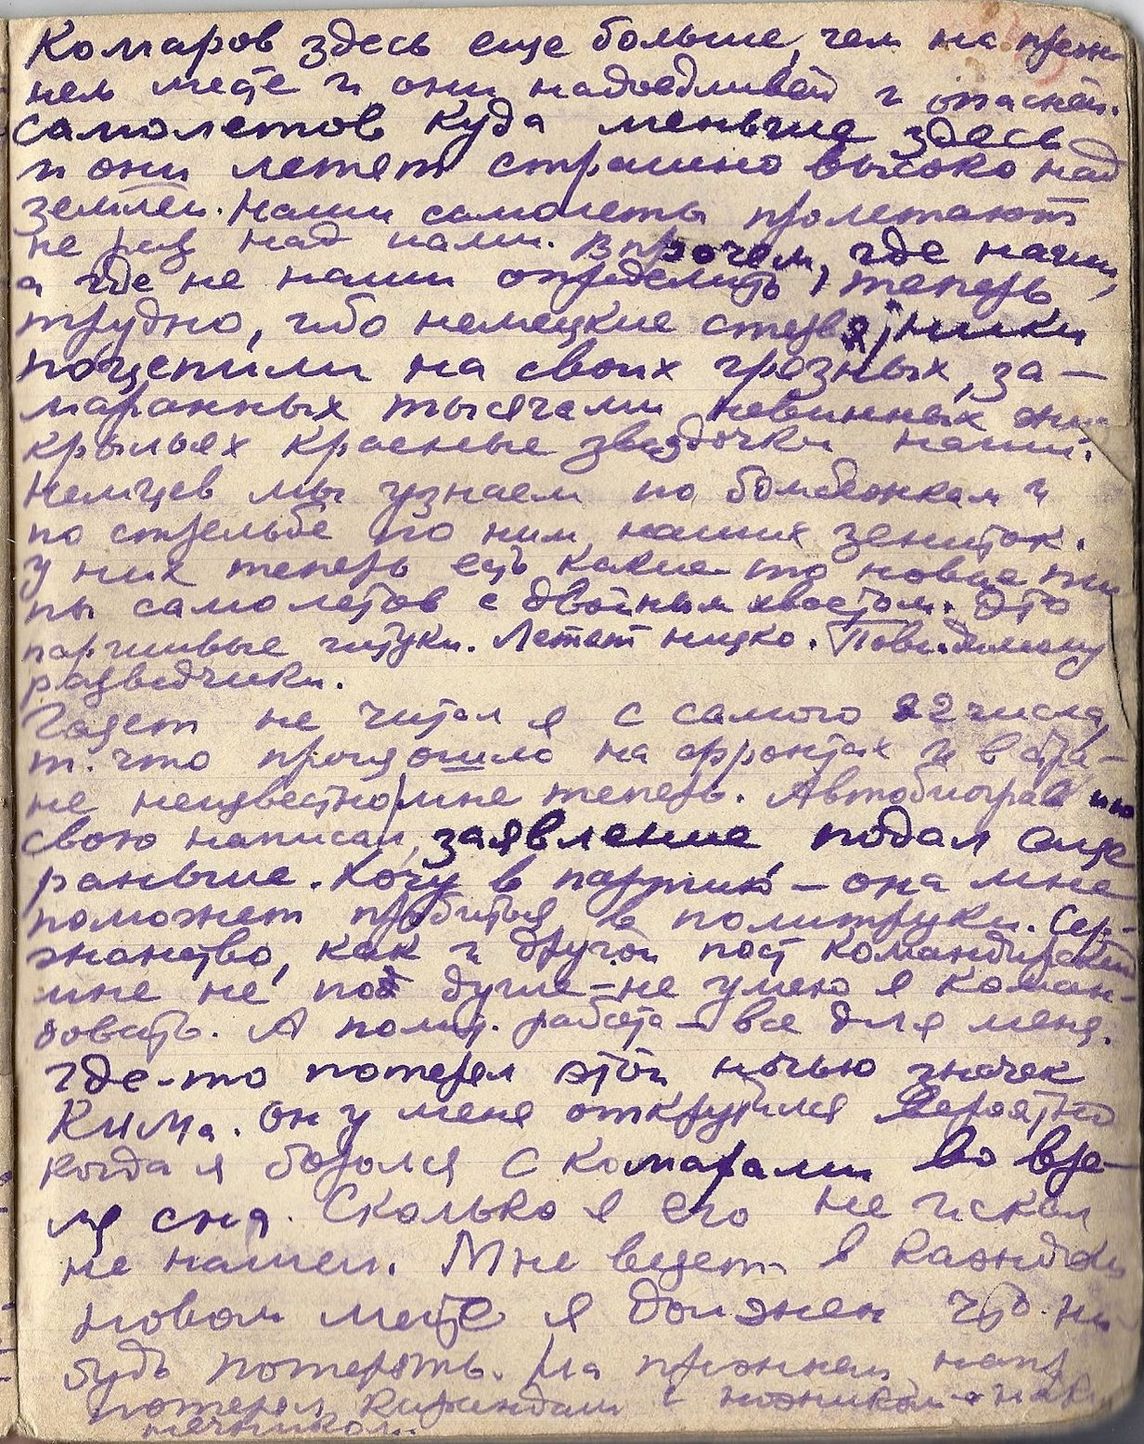 Комаров здесь еще больше, чем на преж
нем месте и они надоедливей и опасней.
Самолетов куда меньше здесь
и они летят страшно высоко над
землей. Наши самолеты пролетают
не раз над нами. Впрочем, где наши,
а где не наши определить, теперь
трудно, ибо немецкие стервятники
поцепили на своих грозных, за-
маранных тысячами невинных
крыльях красные звездочки наши.
Немцев мы узнаем по бомбежкам и
по стрельбе по ним наших зениток.
У них теперь есть какие то новые ти
пы самолетов с двойным хвостом. Это
паршивые штуки. Летают низко. Повидимому
разведчики.
Газет не читал я с самого 22 числа,
т. что произошло на фронтах и в стра-
не неизвестно мне теперь. Автобиографию
свою написал, заявление подал еще
раньше. Хочу в партию - она мне
поможет пробиться в политруки. Сер-
жантство, как и другой пост командирский
мне не по душе - не умею я коман-
довать. А полит. работа - все для меня.
Где-то потерял этой ночью значек
Кима. Он у меня открутился вероятно
когда я боролся с комарами во вре-
мя сна. Сколько я его не искал
не нашел. Мне везет - в каждом
новом месте я должен что-ни
будь потерять. На прежнем напр
потерял карандаш с ножиком
нечником.